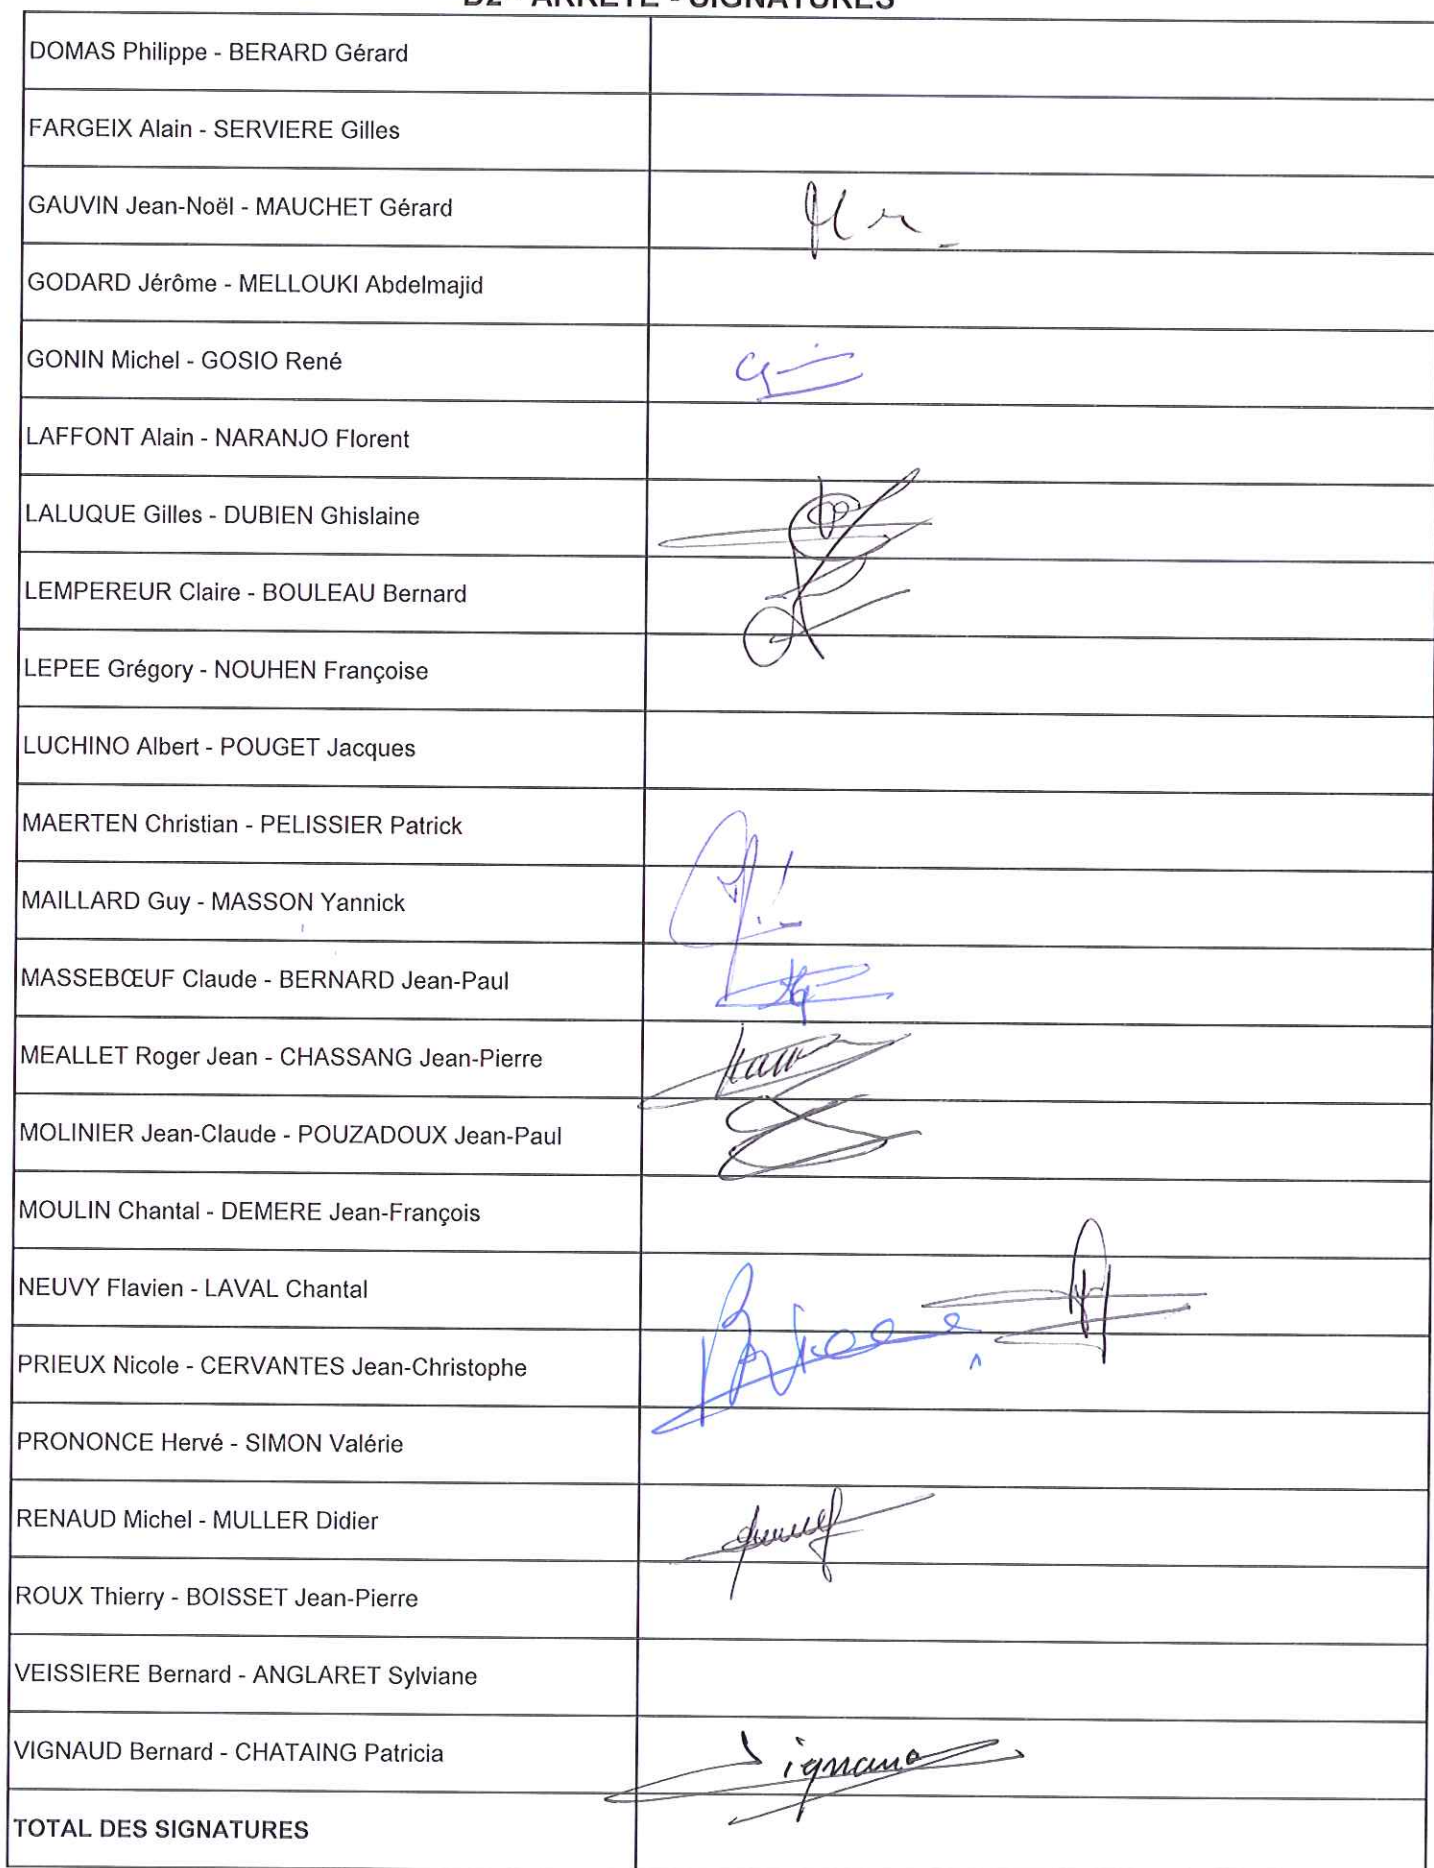 D2 - ARRETE - SIGNATURES
DOMAS Philippe - BERARD Gérard
FARGEIX Alain - SERVIERE Gilles
GAUVIN Jean-Noël - MAUCHET Gérard
GODARD Jérôme - MELLOUKI Abdelmajid
GONIN Michel - GOSIO René
LAFFONT Alain - NARANJO Florent
LALUQUE Gilles - DUBIEN Ghislaine
LEMPEREUR Claire - BOULEAU Bernard
LEPEE Grégory - NOUHEN Françoise
LUCHINO Albert - POUGET Jacques
MAERTEN Christian - PELISSIER Patrick
MAILLARD Guy - MASSON Yannick
MASSEBŒUF Claude - BERNARD Jean-Paul
MEALLET Roger Jean - CHASSANG Jean-Pierre
MOLINIER Jean-Claude - POUZADOUX Jean-Paul
MOULIN Chantal - DEMERE Jean-François
NEUVY Flavien - LAVAL Chantal
PRIEUX Nicole - CERVANTES Jean-Christophe
PRONONCE Hervé - SIMON Valérie
RENAUD Michel - MULLER Didier
ROUX Thierry - BOISSET Jean-Pierre
VEISSIERE Bernard - ANGLARET Sylviane
VIGNAUD Bernard - CHATAING Patricia
TOTAL DES SIGNATURES